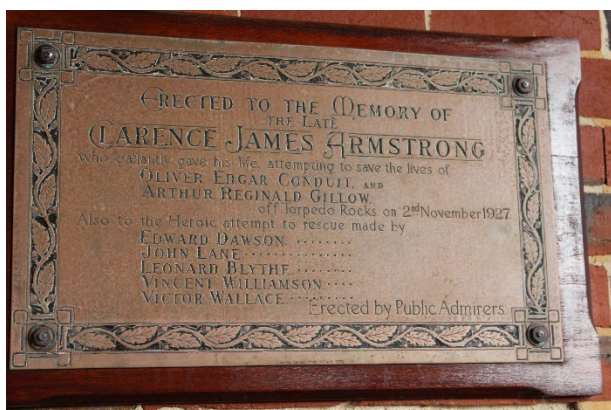 ERECTED TO THE MEMORY OF
THE LATE
CLARENCE JAMES ARMSTRONG
who gallantly gave his life, attempting to save the lives of
OLIVER EDGAR CONDUIT, AND
ARTHUR REGINALD GILLOW,
off Torpedo Rocks on 2nd November 1927
Also to the Heroic attempt to rescue made by
EDWARD DAWSON ........
JOHN LANE ............
LEONARD BLYTHE ........
VINCENT WILLIAMSON ....
VICTOR WALLACE ........
Erected by Public Admirers.